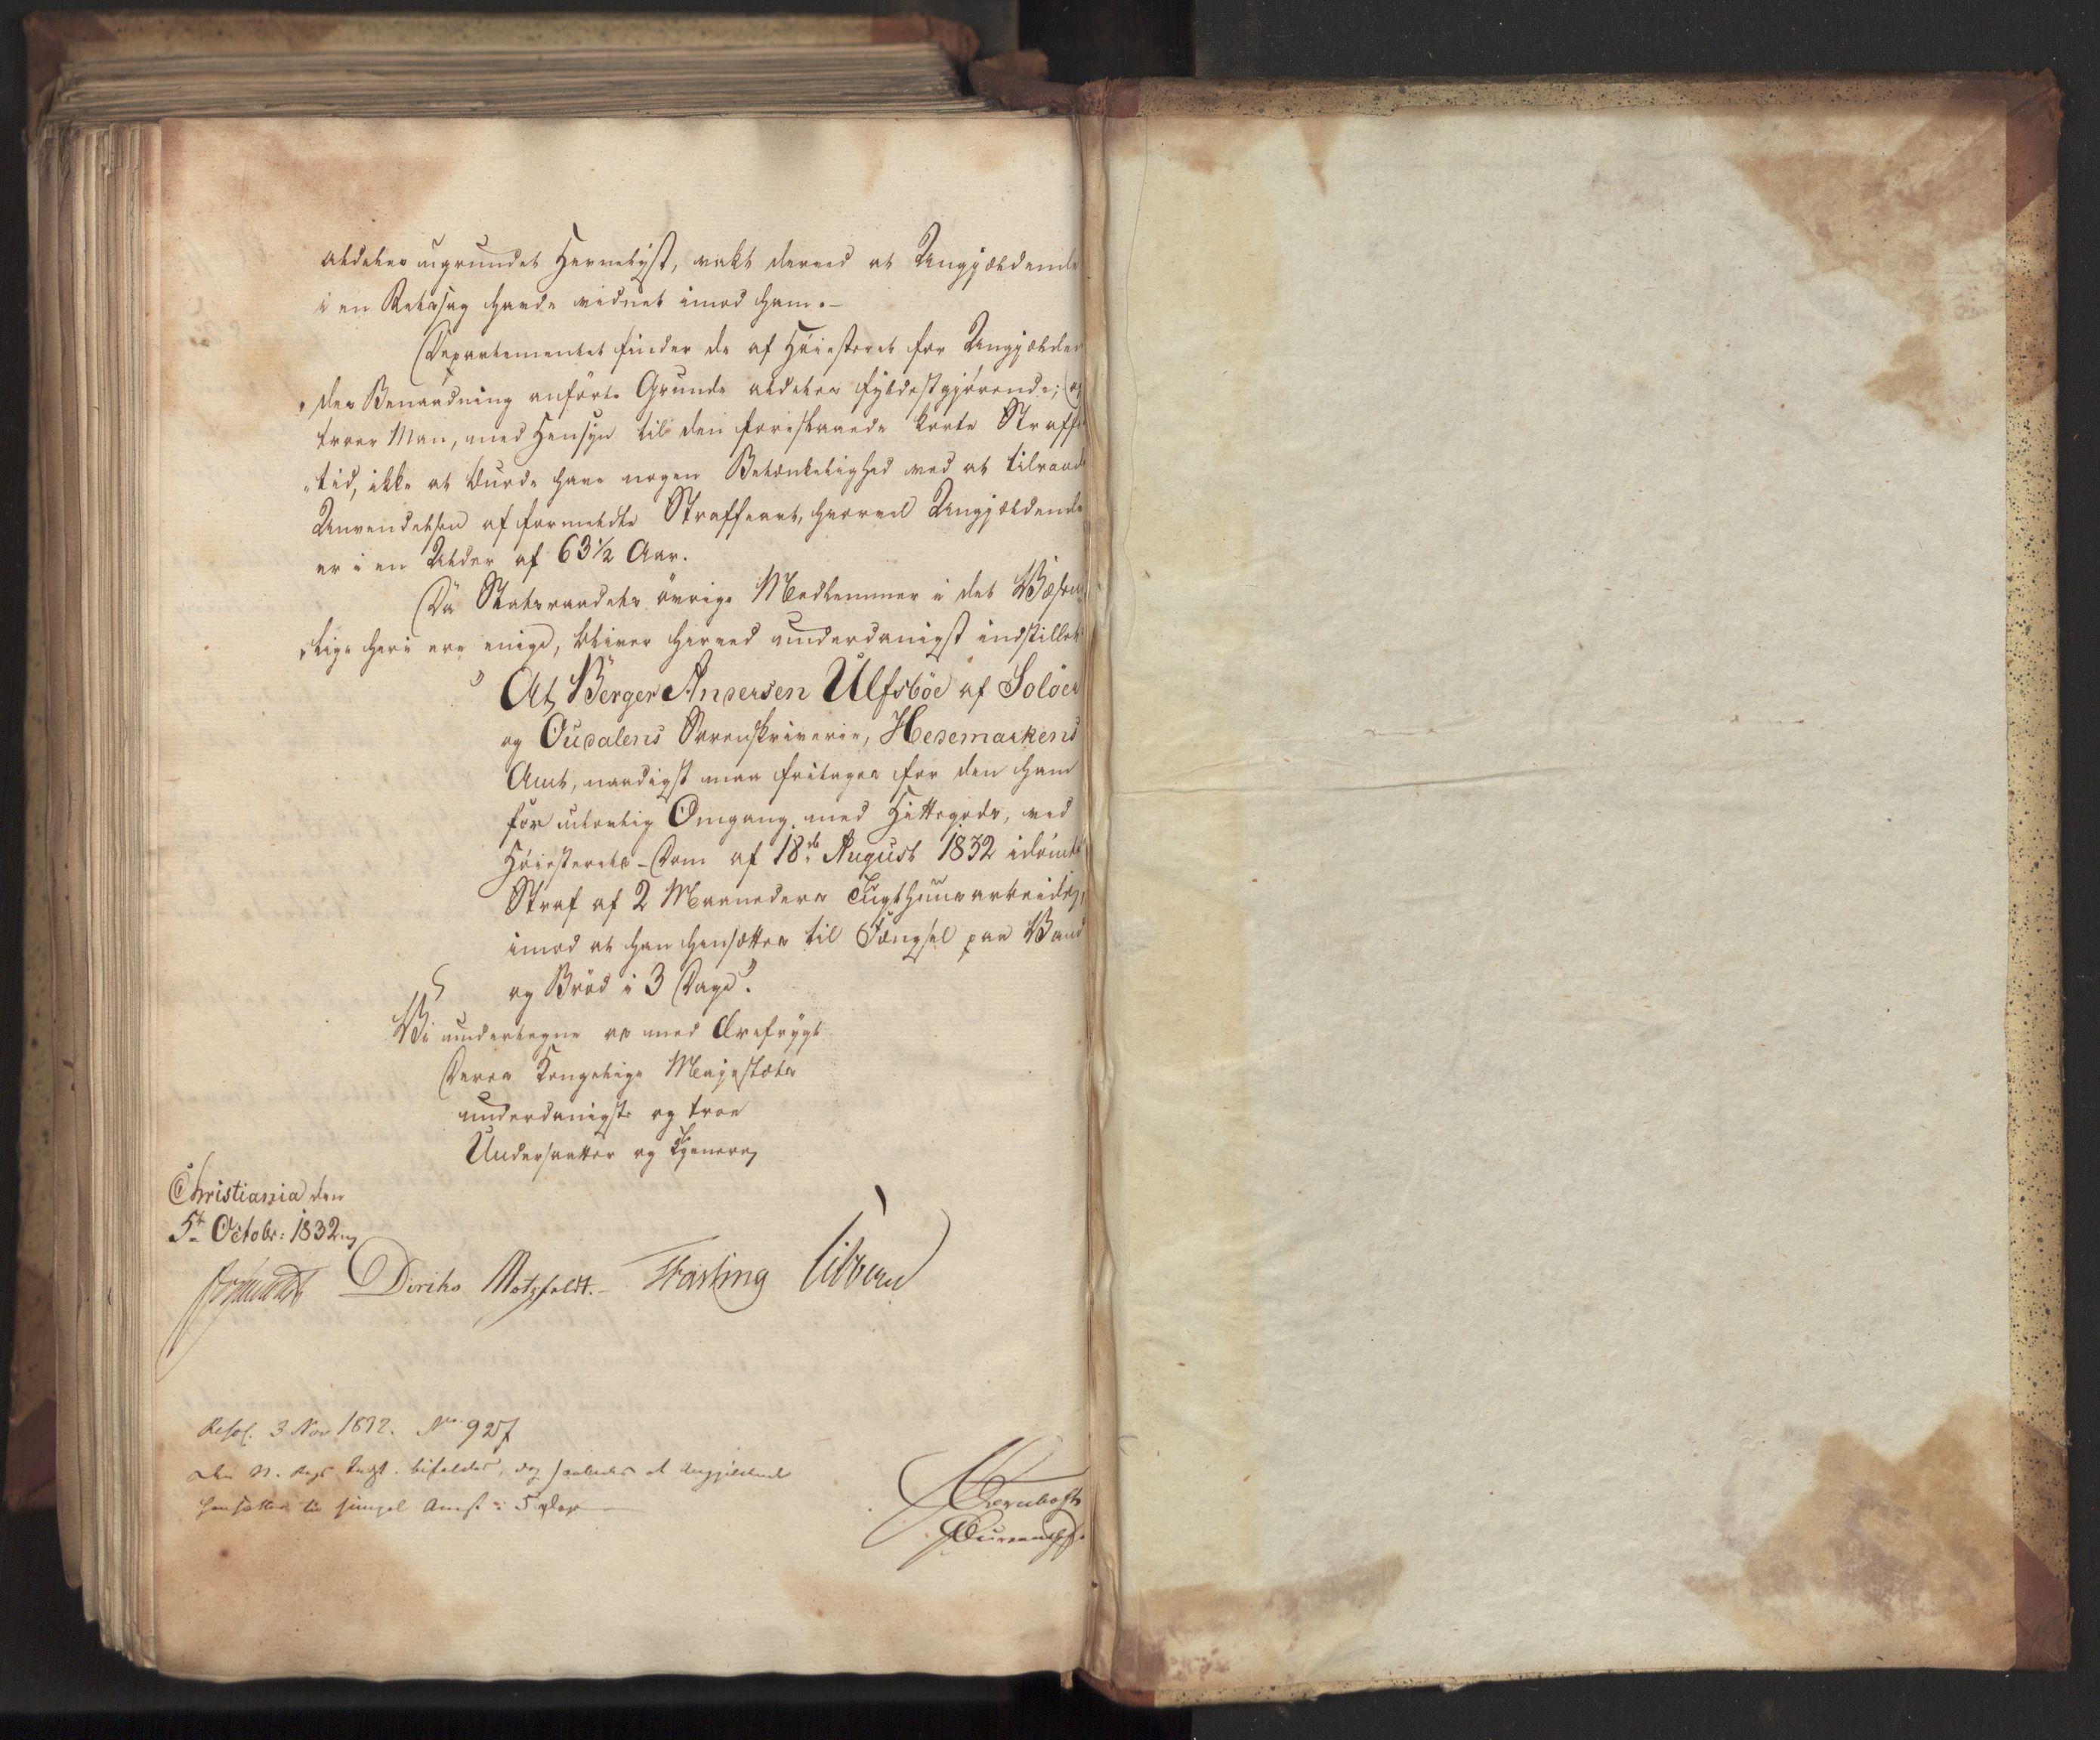 aldeles ugrundet Hevnelyst, vakt derved at Angjældende
i en Retssag havde vidnet imod ham. –
Departementet finder de af Høiesteret for Angjælden-
des Benaadning anförte Grunde aldeles fyldestgjörende; og
troer Man, med Hensyn til den foreskrevne korte Straffe-
tid, ikke at burde have nogen Betænkelighed ved at tilraade
Anvendelsen af formeldte Straffeart, hvorvel Angjældende
er i en Alder af 63 1/2 Aar.
Da Statsraadets övrige Medlemmer i det Væsent-
lige heri ere enige, bliver herved underdanigst indstillet:
At Berger Andersen Ulfsböe af Solöer
og Oudalens Sorenskriverie, Hedemarkens
Amt, naadigst maa fritages for den ham
for ulovlig Omgang med Hittegods, ved
Höiesterets-Dom af 18de August 1832 idömte
Straf af 2 Maaneders Tugthuusarbeide,
imod at han hensættes til Fængsel paa Vand
og Bröd i 3 Dage.
Vi undertegne os med Ærefrygt
Deres Kongelige Majestæts
underdanigste og troe
Undersaatter og Tjenere,
Christiania den
5te Octobr: 1832
Diriks Motzfeldt. Fasting Sibbern
Resol. 3 Nov 1832. No 927
Den N. Regs Indst. bifaldes, dog saaledes at Angjældende
hensættes til simpel Arrest i 5 Dage